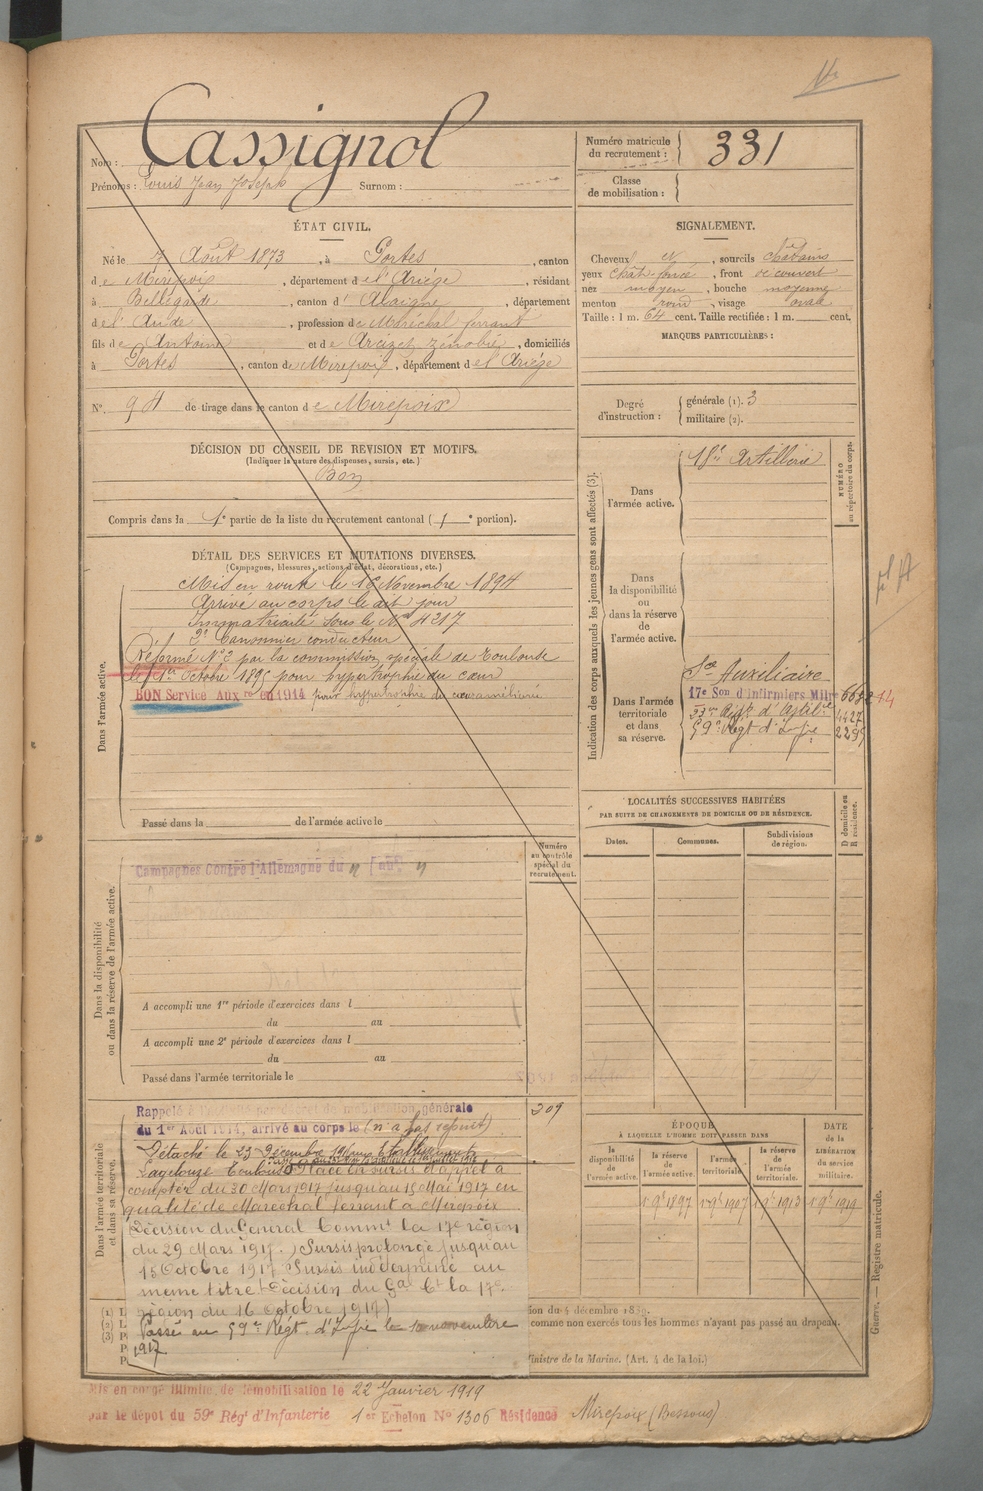 Nom : Cassignol
Prénoms : Louis Jean Joseph Surnom :
Numéro matricule du recrutement : 331
Classe de mobilisation :
ÉTAT CIVIL.
Né le 7 Août 1873, à Portes, canton
de Mirepoix, département de l'Ariège, résidant
à Bellegarde, canton d'Alaigne, département
de l'Aude, profession de Maréchal ferrant
fils de Antoine et de Arcizet Zénobie, domiciliés
à Portes, canton de Mirepoix, département de l'Ariège
N° 94 de tirage dans le canton de Mirepoix
SIGNALEMENT.
Cheveux N, sourcils châtains
yeux chât. foncé, front découvert
nez moyen, bouche moyenne
menton rond, visage ovale
Taille : 1 m. 64 cent. Taille rectifiée : 1 m. cent.
MARQUES PARTICULIÈRES :
Degré d'instruction : générale (1). 3
militaire (2).
DÉCISION DU CONSEIL DE REVISION ET MOTIFS.
(Indiquer la nature des dispenses, sursis, etc.)
Bon
Compris dans la 1e partie de la liste du recrutement cantonal (1e portion).
DÉTAIL DES SERVICES ET MUTATIONS DIVERSES.
(Campagnes, blessures, actions d'éclat, décorations, etc.)
Dans l'armée active.
Mis en route le 16 Novembre 1894
Arrivé au corps le dit jour
Immatriculé sous le N° 4217
2e Canonnier conducteur
Réformé N° 2 par la commission spéciale de Toulouse
le 1er Octobre 1895 pour hypertrophie du cœur
BON Service Auxre en 1914 pour hypertrophie du cœur
Passé dans la de l'armée active le
Indication des corps auxquels les jeunes gens sont affectés (3).
NUMÉRO au répertoire du corps.
Dans l'armée active.
18e Artillerie
Dans la disponibilité ou dans la réserve de l'armée active.
Dans l'armée territoriale et dans sa réserve.
Sce Auxiliaire
17e Son d'Infirmiers Milres
59e Régt d'Infie
LOCALITÉS SUCCESSIVES HABITÉES
PAR SUITE DE CHANGEMENTS DE DOMICILE OU DE RÉSIDENCE.
Dates.
Communes.
Subdivisions de région.
D domicile ou R résidence.
Numéro au contrôle spécial du recrutement.
Dans la disponibilité ou dans la réserve de l'armée active.
Campagnes Contre l'Allemagne du au
A accompli une 1re période d'exercices dans l
du au
A accompli une 2e période d'exercices dans l
du au
Passé dans l'armée territoriale le
Dans l'armée territoriale et dans sa réserve.
309
Rappelé à l'activité par décret de mobilisation générale
du 1er Août 1914, arrivé au corps le (n'a pas rejoint)
Détaché le 23 Décembre
Toulouse Placé en sursis d'appel à
compter du 30 Mars 1917 jusqu'au 15 Mai 1917 en
qualité de Maréchal ferrant à Mirepoix
(Décision du Général Commt la 17e région
du 29 Mars 1917.) Sursis prolongé jusqu'au
15 Octobre 1917 Sursis indéterminé au
même titre (Décision du Gal Ct la 17e
région du 16 Octobre 1917)
Passé au 59e Régt d'Infie le 10 novembre
1917
ÉPOQUE
À LAQUELLE L'HOMME DOIT PASSER DANS
la disponibilité de l'armée active.
la réserve de l'armée active.
l'armée territoriale.
la réserve de l'armée territoriale.
DATE de la LIBÉRATION du service militaire.
1 9e 1897 1 9e 1907 1 9e 1913 1 9e 1919
comme non exercés tous les hommes n'ayant pas passé au drapeau.
ministre de la Marine. (Art. 4 de la loi.)
Guerre. — Registre matricule.
Mis en congé illimité de démobilisation le 22 Janvier 1919
par le dépôt du 59e Régt d'Infanterie 1er Echelon N° 1306 Résidence Mirepoix (Bessous)